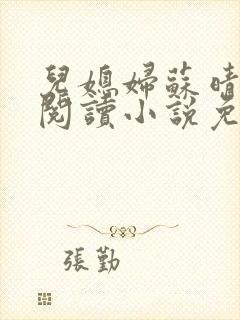 兒媳婦蘇晴
閱讀小說免
張勤